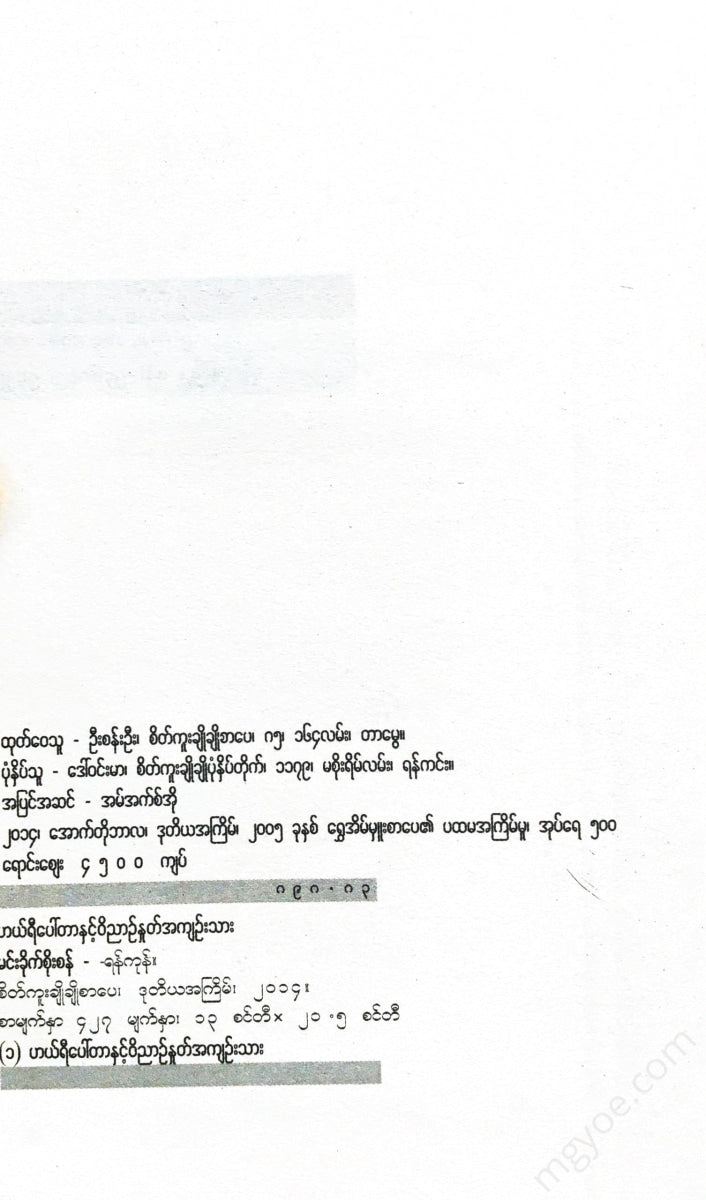 ထုတ်ဝေသူ - ဦးစန်းဦး၊ စိတ်ကူးချိုချိုစာပေ၊ ဂ၅၊ ၁၆၄လမ်း၊ တာမွေ။
ပုံနှိပ်သူ - ဒေါ်ဝင်းမာ၊ စိတ်ကူးချိုချိုပုံနှိပ်တိုက်၊ ၁၁၇၉၊ မစိုးရိမ်လမ်း၊ ရန်ကင်း။
အပြင်အဆင် - အမ်အက်စ်အို
၂၀၁၄၊ အောက်တိုဘာလ၊ ဒုတိယအကြိမ်၊ ၂၀၀၅ ခုနှစ် ရွှေအိမ်မှူးစာပေ၏ ပထမအကြိမ်မူ၊ အုပ်ရေ ၅၀၀
ရောင်းဈေး ၄၅၀၀ ကျပ်
၈၉၈.၈၃
ဟယ်ရီပေါ်တာနှင့်ဝိညာဉ်နှုတ်အကျဉ်းသား
မင်းခိုက်စိုးစန် - -ရန်ကုန်။
စိတ်ကူးချိုချိုစာပေ၊ ဒုတိယအကြိမ်၊ ၂၀၁၄။
စာမျက်နှာ ၄၂၇ မျက်နှာ၊ ၁၃ စင်တီ× ၂၀.၅ စင်တီ
(၁) ဟယ်ရီပေါ်တာနှင့်ဝိညာဉ်နှုတ်အကျဉ်းသား
mgyoe.com